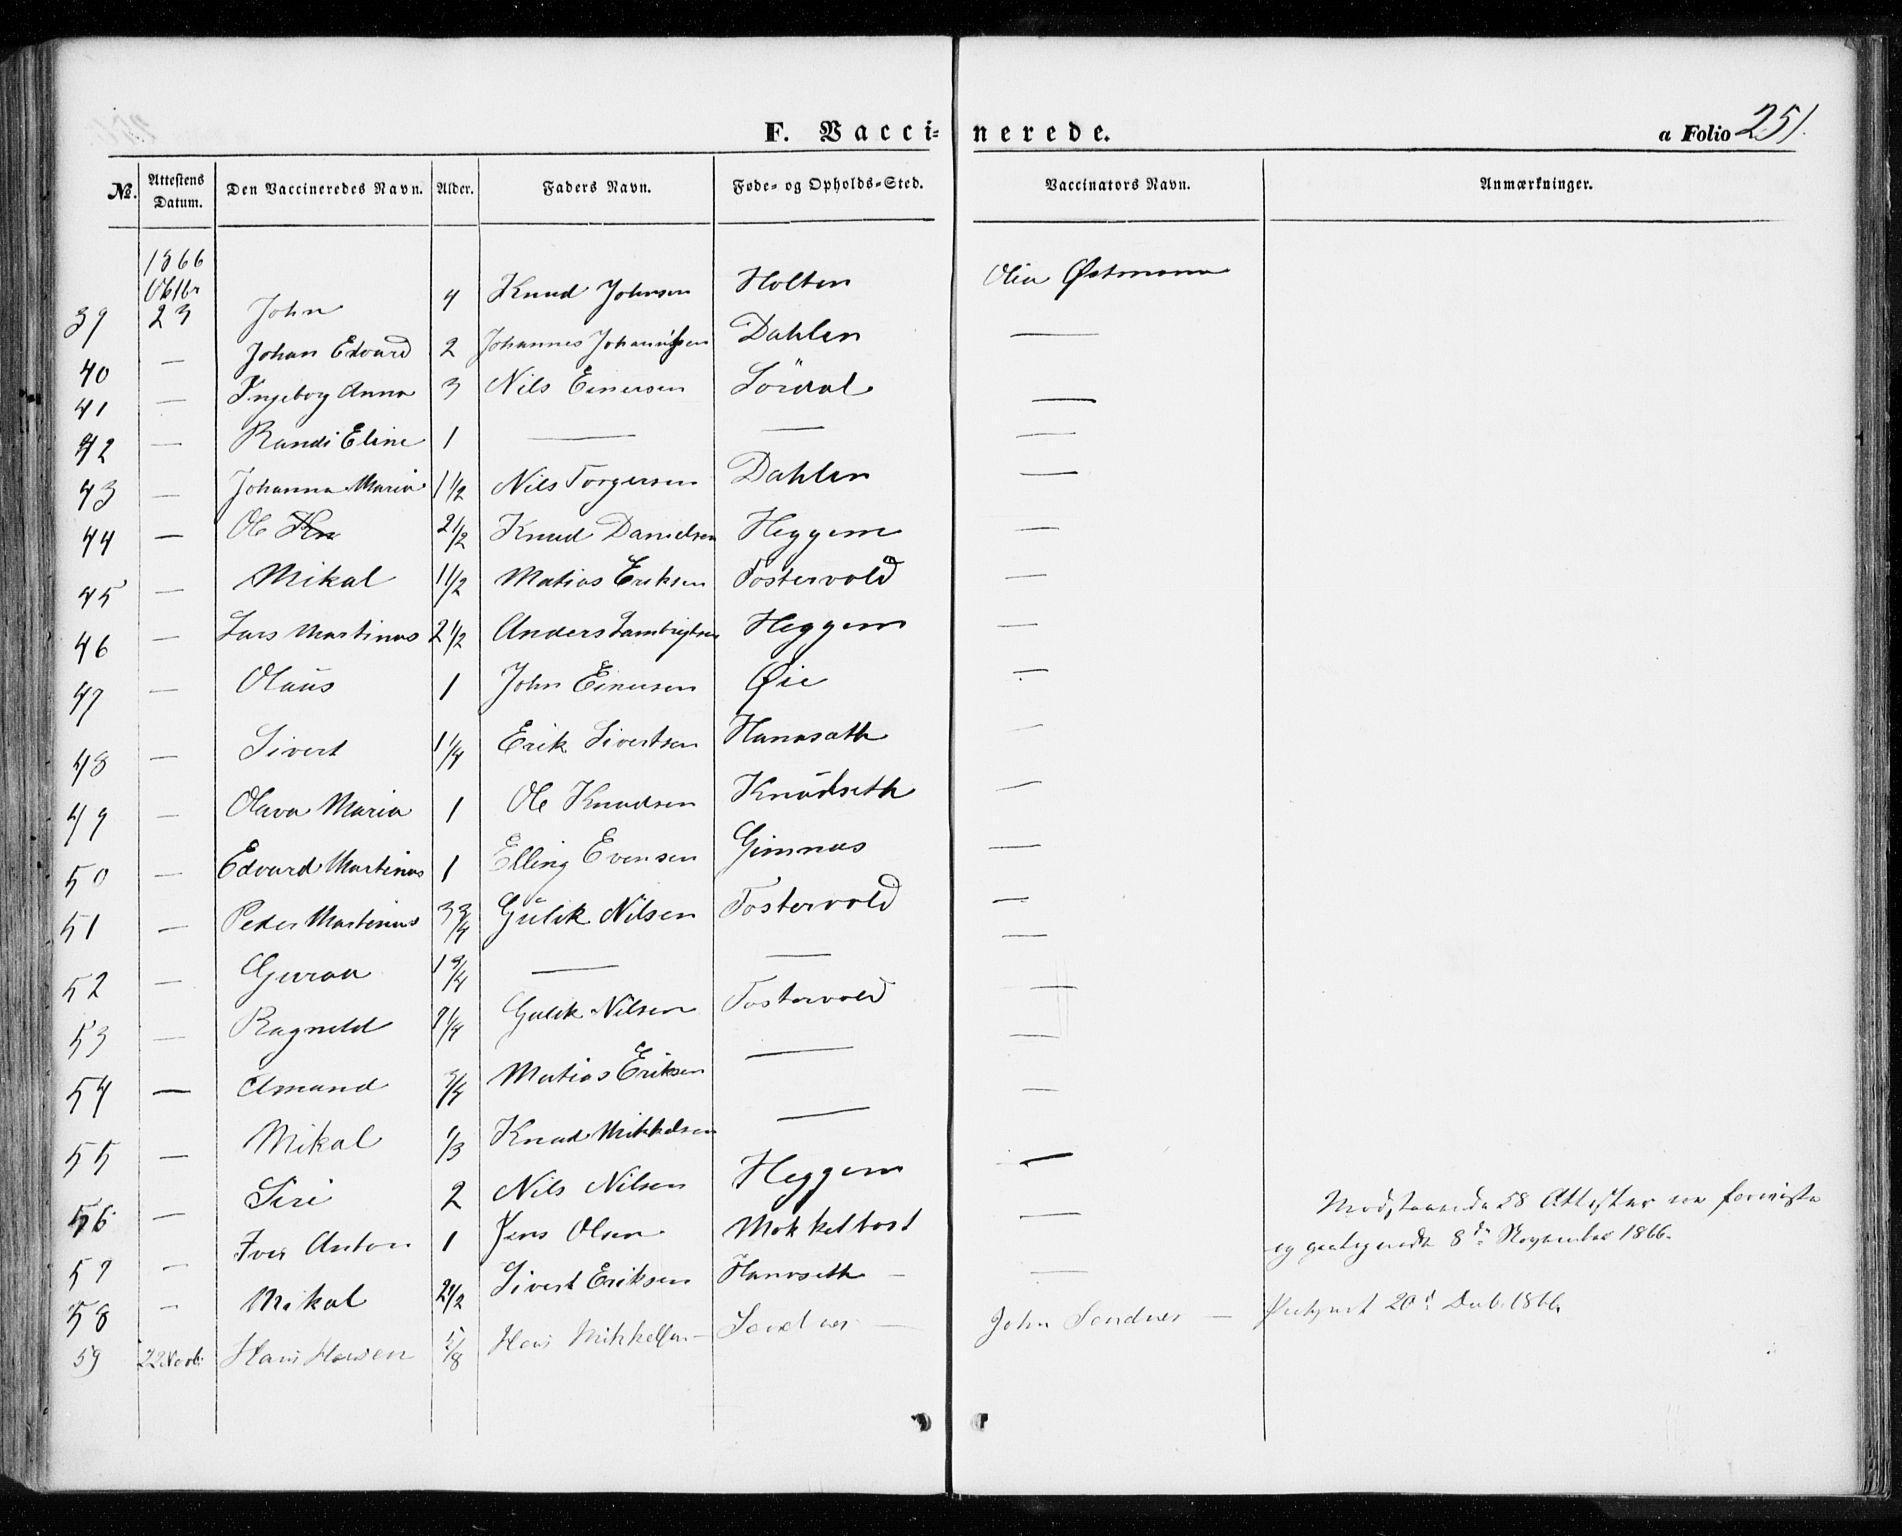 F. Vaccinerede. a Folio 251.
№. Attestens Datum. Den Vaccineredes Navn. Alder. Faders Navn. Føde- og Opholds-Sted. Vaccinators Navn. Anmærkninger.
1866
Oktbr
39 23 John 4 Knud Johnsen Holten Olia Østmann
40 — Johan Edvard 2 Johannes Johannessen Dahlen —
41 — Ingeborg Anna 3 Nils Einersen Sördal —
42 — Randi Eline 1 — — —
43 — Johanna Maria 1 1/2 Nils Torgersen Dahlen —
44 — Ole Kn 2 1/2 Knud Danielsen Heggem —
45 — Mikal 1 1/2 Matias Eriksen Tostervold —
46 — Lars Martinus 2 1/2 Anders Lambrigtsen Heggem —
47 — Olaus 1 John Einersen Øie —
48 — Sivert 1 1/4 Erik Sivertsen Hanaseth —
49 — Olava Maria 1 Ole Knudsen Knudseth —
50 — Edvard Martinus 1 Elling Evensen Gimnas —
51 — Peder Martinus 3 3/4 Gulik Nilsen Tostervold —
52 — Guraa 1 3/4 — — —
53 — Ragnild 2 1/4 Gulik Nilsen Tostervold —
54 — Amund 3/4 Matias Eriksen — —
55 — Mikal 1/3 Knud Mikkelsen — —
56 — Siri 2 Nils Nilsen Heggem —
57 — Iver Anton 1 Jens Olsen Mokkelbost — Modstaaende 58 Attester
58 — Mikal 2 1/2 Sivert Eriksen Hanaseth — — og 8de November 1866.
59 22 Novb. Hans Hansen 5/8 Hans Mikkelsen — Sandnes — John Sandnes — 20d Decb. 1866.